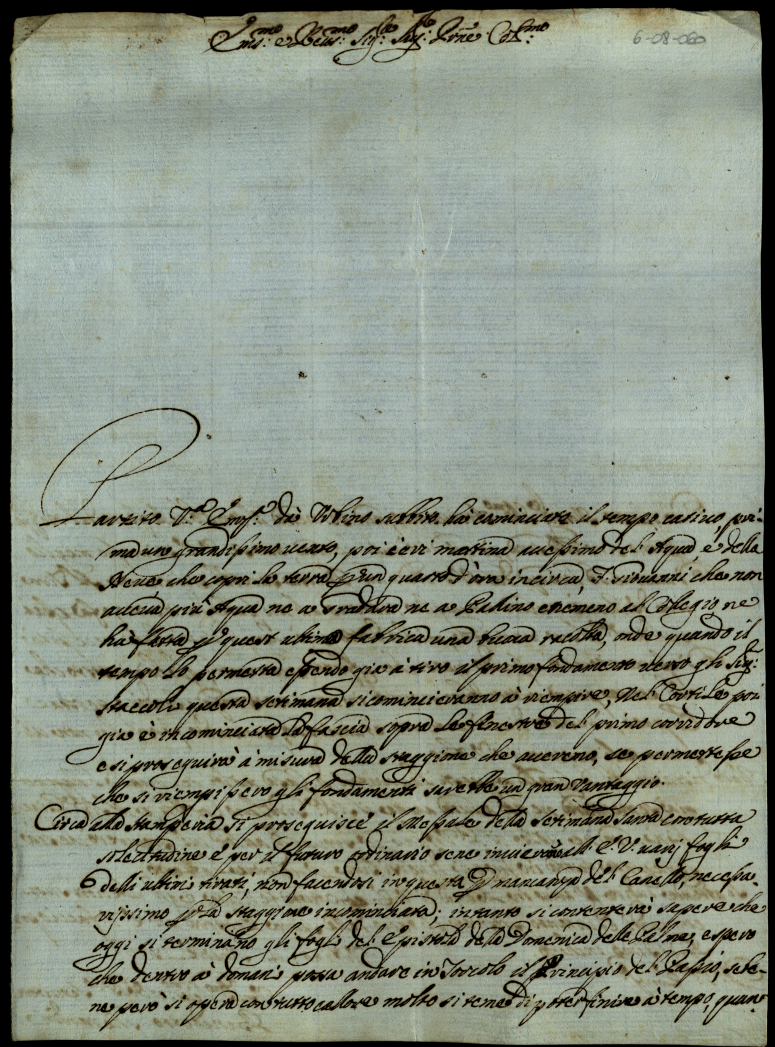 Em:mo e Reu:mo Sig:re Sig:re Prñe Col:mo
6-08-060
Partito V:a Em:a dà Urbino subbito hà cominciato il tempo catiuo, pri-
ma un grandissimo uento, poi ieri mattina auessimo del Aqua, e della
Neue che coprì la terra p un quarto d'ora incirca, S. Giouanni che non
aueua più Aqua ne a ne a ne meno al Collegio ne
hà fatta p quest ultima fabrica una buona racolta, onde quando il
tempo lo permetta essendo già à tiro il primo fondamento uerso gli Sig:ri
Staccoli questa settimana si comincieranno à riempire, Nel Cortile poi
già è incominciata la fascia sopra le finestre del primo corridore
e si proseguirà à misura della staggione che auereno, se permettesse
che si riempissero gli fondamenti sarebbe un gran uantaggio.
Circa alla stamperia si proseguisce il Messale della Settimana Santa con tutta
solecitudine e per il futuro ordinario se ne inuieranno all' E. V. uarij fogli
delli ultimi tirati, non facendosi in questa p mancanza del Canello, necessa
rijssimo p la staggione incominciata; intanto si contenterà sapere che
oggi si terminano gli fogli del Epistola della Domenica delle Palme, e spero
che dentro à domani possa andare in Torcolo il Principio del Passio, se be-
ne però si opera con tutto callore molto si teme di poter finire à tempo, quan-